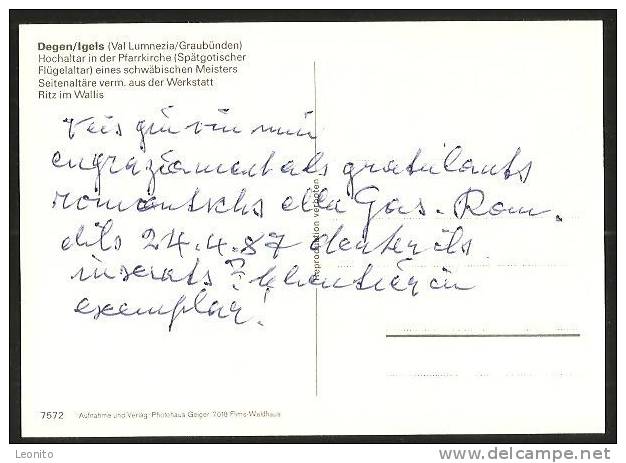 Degen/Igels (Val Lumnezia/Graubünden)
Hochaltar in der Pfarrkirche (Spätgotischer
Flügelaltar) eines schwäbischen Meisters
Seitenaltäre verm. aus der Werkstatt
Ritz im Wallis
engraziament als gratulants
romontschs ella Gas. Rom.
dils 24.4.87 denter ils
inserats?
exemplar!
Reproduktion verboten
7572 Aufnahme und Verlag: Photohaus Geiger 7018 Flims-Waldhaus
Leonito
www.delcampe.net